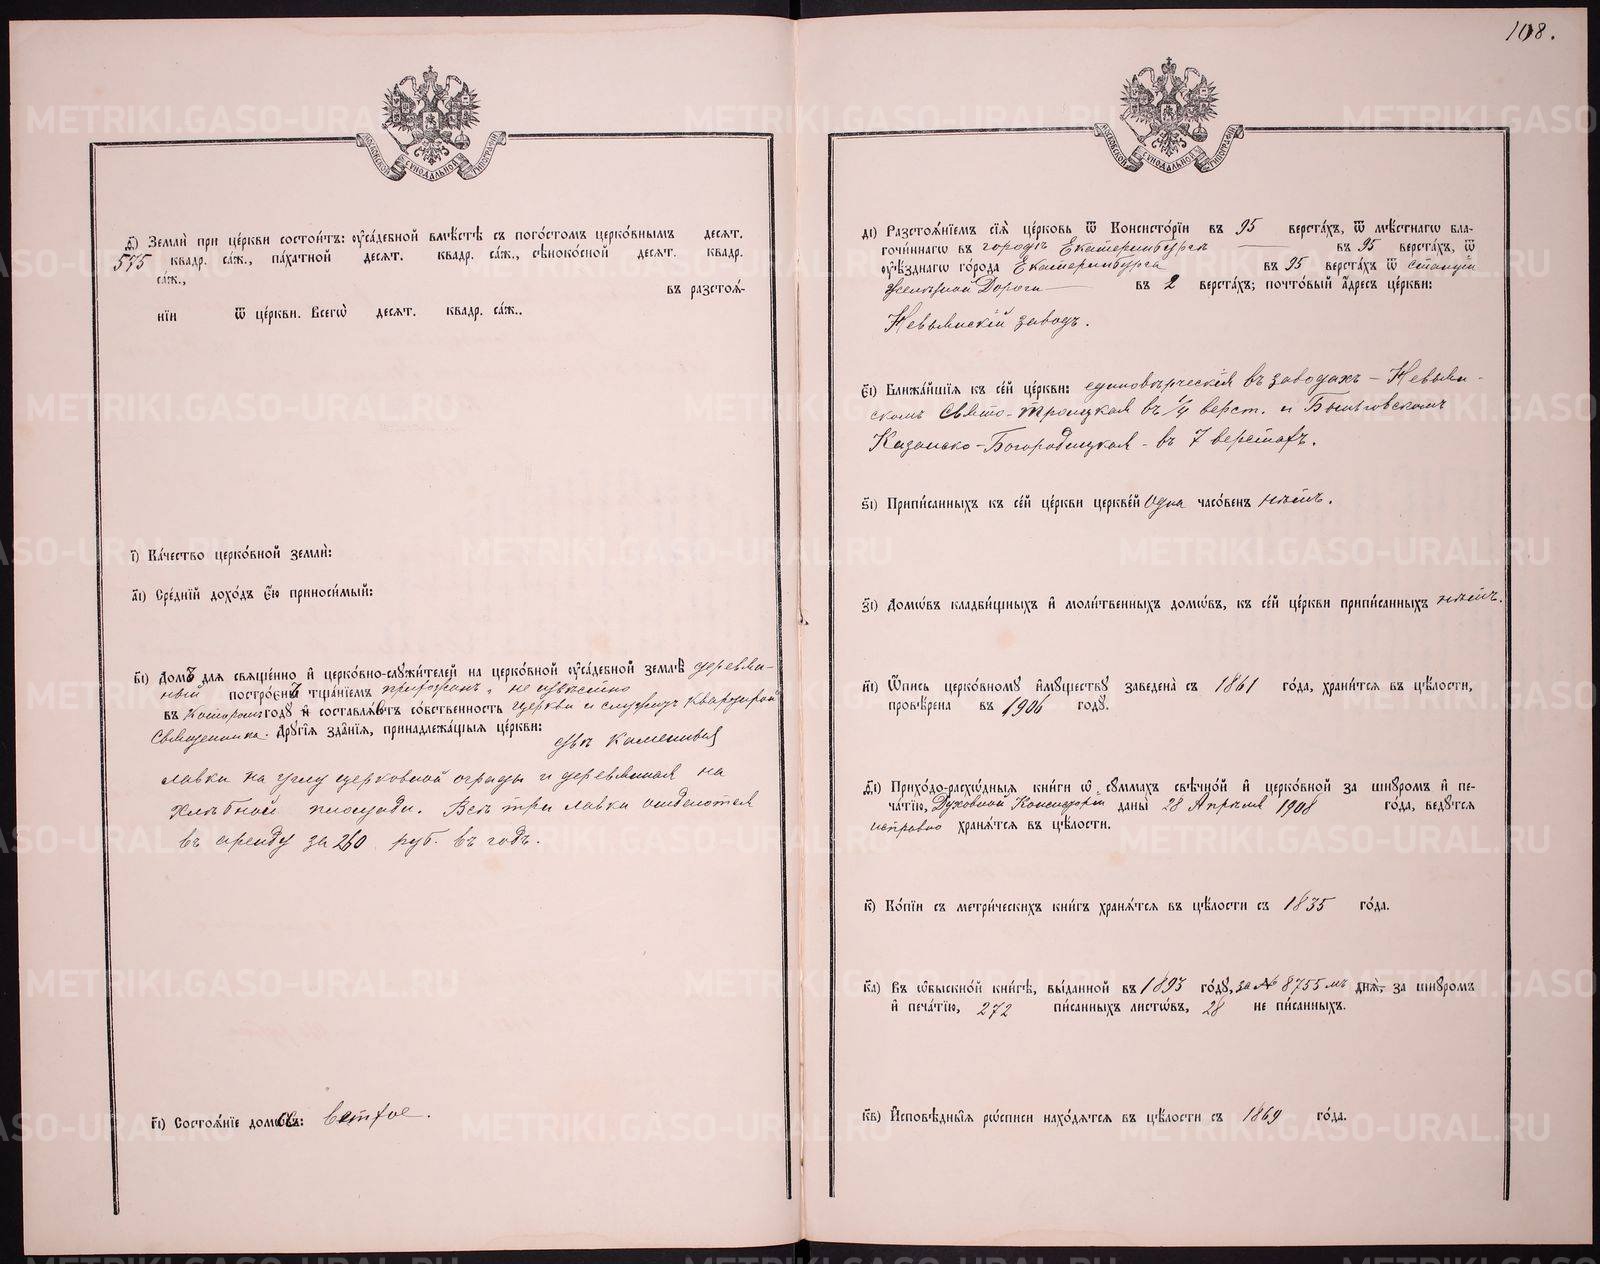 МОСКОВСКОЙ СѴНОДАЛЬНОЙ ТИПОГРАФІИ
ѳ҃) Землѝ при це́ркви состои́тъ: оуса́дебной вмѣ́стѣ съ пого́стомъ церко́внымъ десѧт.
575 квадр. са́ж., па́хатной десѧт. квадр. са́ж., сѣноко́сной десѧт. квадр.
са́ж., въ разстоѧ́-
нїи ѿ це́ркви. Всегѡ̀ десѧт. квадр. са́ж..
і҃) Ка́чество церко́вной землѝ:
а҃і) Сре́днїй дохо́дъ є́ю приноси́мый:
в҃і) Домъ для свяще́нно и҆ церко́вно-служи́телей на церко́вной оуса́дебной землѣ̀ деревян-
ный постро́енъ тща́нїемъ прихожанъ, не извѣстно
въ которомъ году̀ и҆ составлѧ́етъ со́бственность церкви и служитъ квартирой
Священника. Другі́ѧ зда́нїѧ, принадлежа́щыѧ це́ркви:
двѣ каменныя
лавки на углу церковной ограды и деревянная на
Хлѣбной площади. Всѣ три лавки отдаются
въ аренду за 260 руб. въ годъ.
г҃і) Состоѧ́нїе домѡ́въ: ветхое.
108.
МОСКОВСКОЙ СѴНОДАЛЬНОЙ ТИПОГРАФІИ
д҃і) Разстоѧ́нїемъ сїѧ̀ це́рковь ѿ Консисто́рїи въ 95 верста́хъ, ѿ мѣ́стнагѡ бла-
гочи́ннагѡ въ городѣ Екатеринбургѣ въ 95 верста́хъ, ѿ
оуѣ́зднагѡ го́рода Екатеринбурга въ 95 верста́хъ ѿ станціи
Желѣзной Дороги въ 2 верста́хъ; почто́вый а҆́дресъ це́ркви:
Невьянскій заводъ.
є҃і) Ближа́йшїѧ къ се́й це́ркви: единовѣрческія въ заводахъ – Невьян-
скомъ Свято-Троицкая въ 1/4 верст. и Быньговскомъ
Казанско-Богородицкая – въ 7 верстахъ.
ѕ҃і) Припи́санныхъ къ се́й це́ркви церкве́й Одна часо́венъ нѣтъ.
з҃і) Домѡ́въ кладби́щныхъ и҆ моли́твенныхъ домѡ́въ, къ се́й це́ркви припи́санныхъ нѣтъ.
и҃і) Ѻ҆́пись церко́вному и҆му́ществу заведена̀ съ 1861 го́да, храни́тся въ цѣ́лости,
провѣ́рена въ 1906 году̀.
ѳ҃і) Прихо́до-расхѡ́дныѧ кни́ги ѡ҆ су́ммахъ свѣчно́й и҆ церко́вной за шну́ромъ и҆ пе-
ча́тїю, Духовной Консисторіи даны̀ 28 Апрѣля 1908 го́да, веду́тся
исправно хранѧ́тся въ цѣ́лости.
к҃) Ко́пїи съ метри́ческихъ кни́гъ хранѧ́тся въ цѣ́лости съ 1835 го́да.
к҃а) Въ ѡ҆быскно́й кни́гѣ, вы́данной въ 1893 году̀, за № 8755 мъ днѧ̀, за шну́ромъ
и҆ печа́тїю, 272 пи́санныхъ листѡ́въ, 28 не пи́санныхъ.
к҃в) И҆сповѣ́дныѧ рѡ́списи нахо́дѧтся въ цѣ́лости съ 1869 го́да.
METRIKI.GASO-URAL.RU